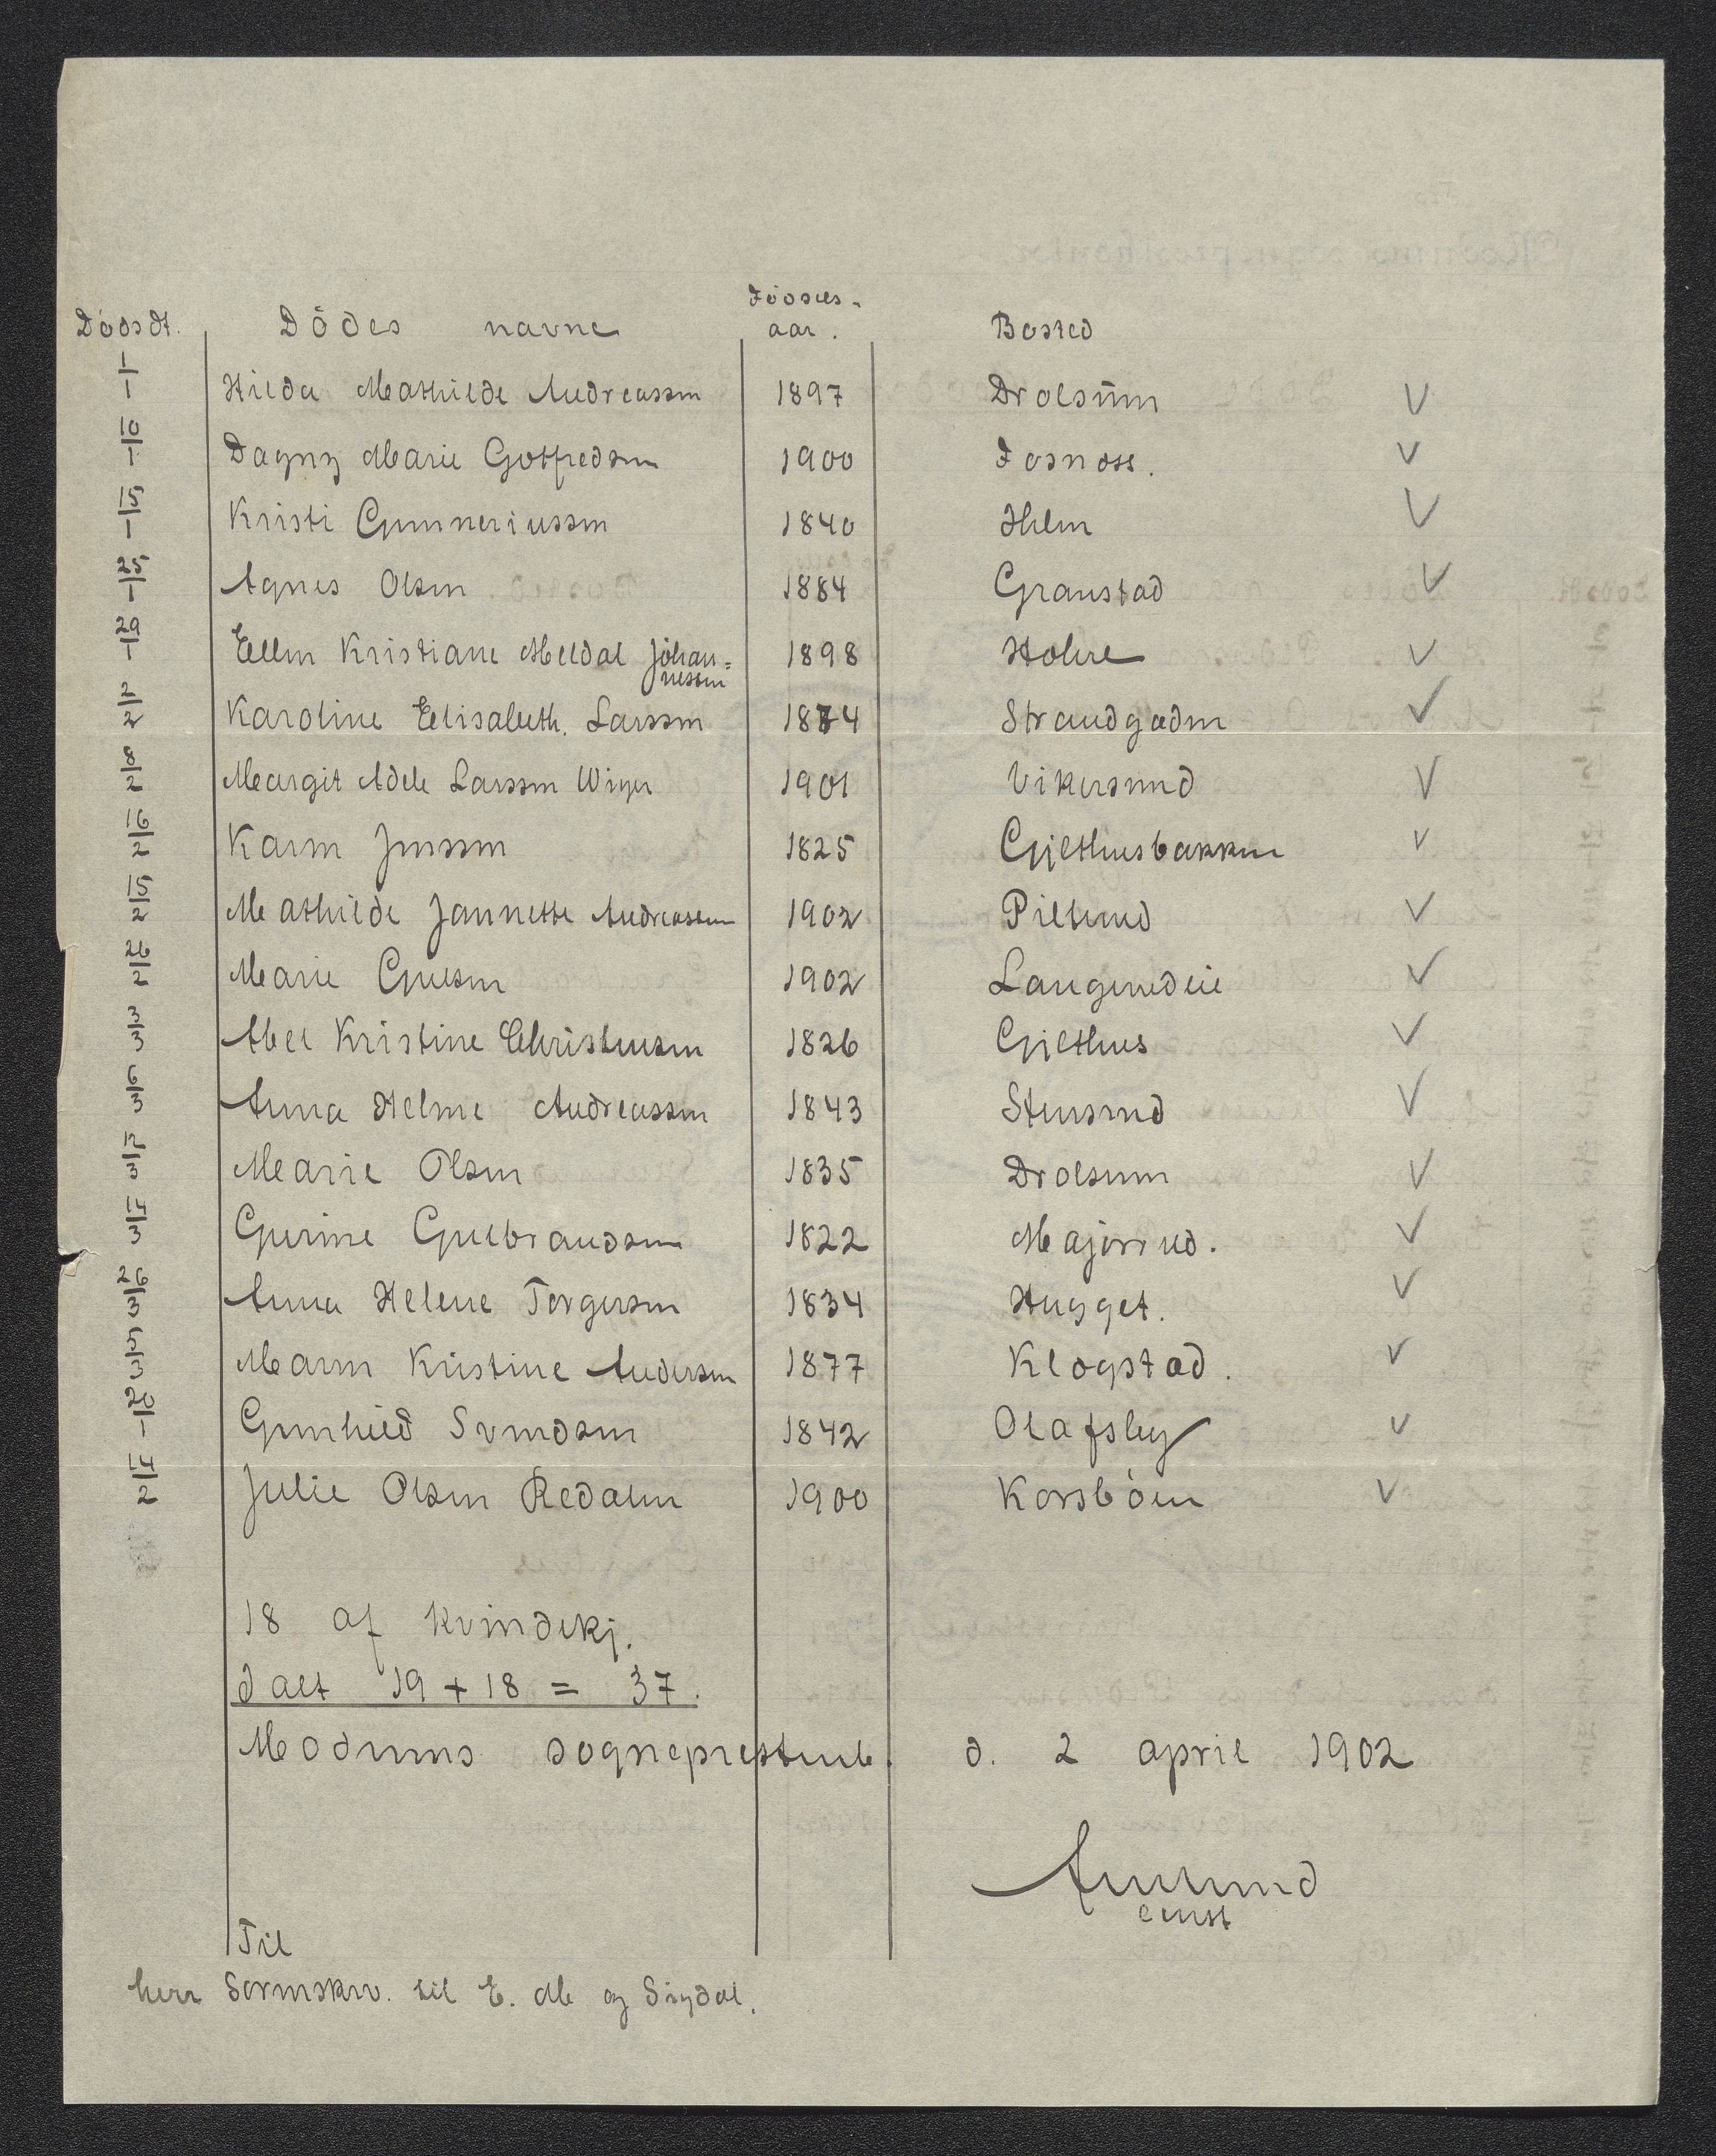 Fødsels-
Dødsdt. Dødes navne aar. Bosted
1/1 Hilda Mathilde Andreassen 1897 Drolsum V
10/1 Dagny Marie Gotfredsen 1900 Fosnoss. V
15/1 Kristi Gunneriussen 1840 Hilen V
25/1 Agnes Olsen 1884 Gravstad V
29/1 Ellen Kristiane Meldal Johan= 1898 Hovre V
nessen
2/2 Karoline Elisabeth. Larssen 1874 Strandgaden V
8/2 Margit Adele Larssen Wiger 1901 Vikersund V
16/2 Karen Jenssen 1825 Gjethusbakken V
15/2 Mathilde Jannette Andreassen 1902 Pilterud V
26/2 Marie Gulsen 1902 Langerudeie V
3/3 Abel Kristine Christensen 1826 Gjethus V
6/3 Anna Helene Andreassen 1843 Stensrud V
12/3 Marie Olsen 1835 Drolsum V
14/3 Gurine Gulbrandsen 1822 Majorrud. V
26/3 Anna Helene Torgersen 1834 Hugget. V
5/3 Maren Kristine Andersen 1877 Klogstad. V
Gunhild Svendsen 1842 Olafsby V
14/2 Julie Olsen Redalen 1900 Korsbøen V
18 af kvindekj.
Ialt 19 + 18 = 37.
Modums sogneprestemb. d. 2 april 1902
const
Til
herr Sorenskrv. til E. M og Sigdal.